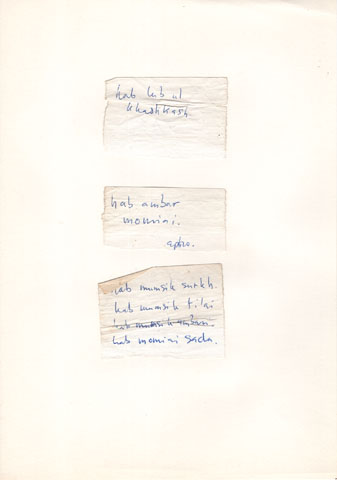 hab lub ul
khashkash.
hab ambar
momiai.
hab mumsik surkh
hab mumsik tilai
hab mumsik ambari
hab momiai sada.